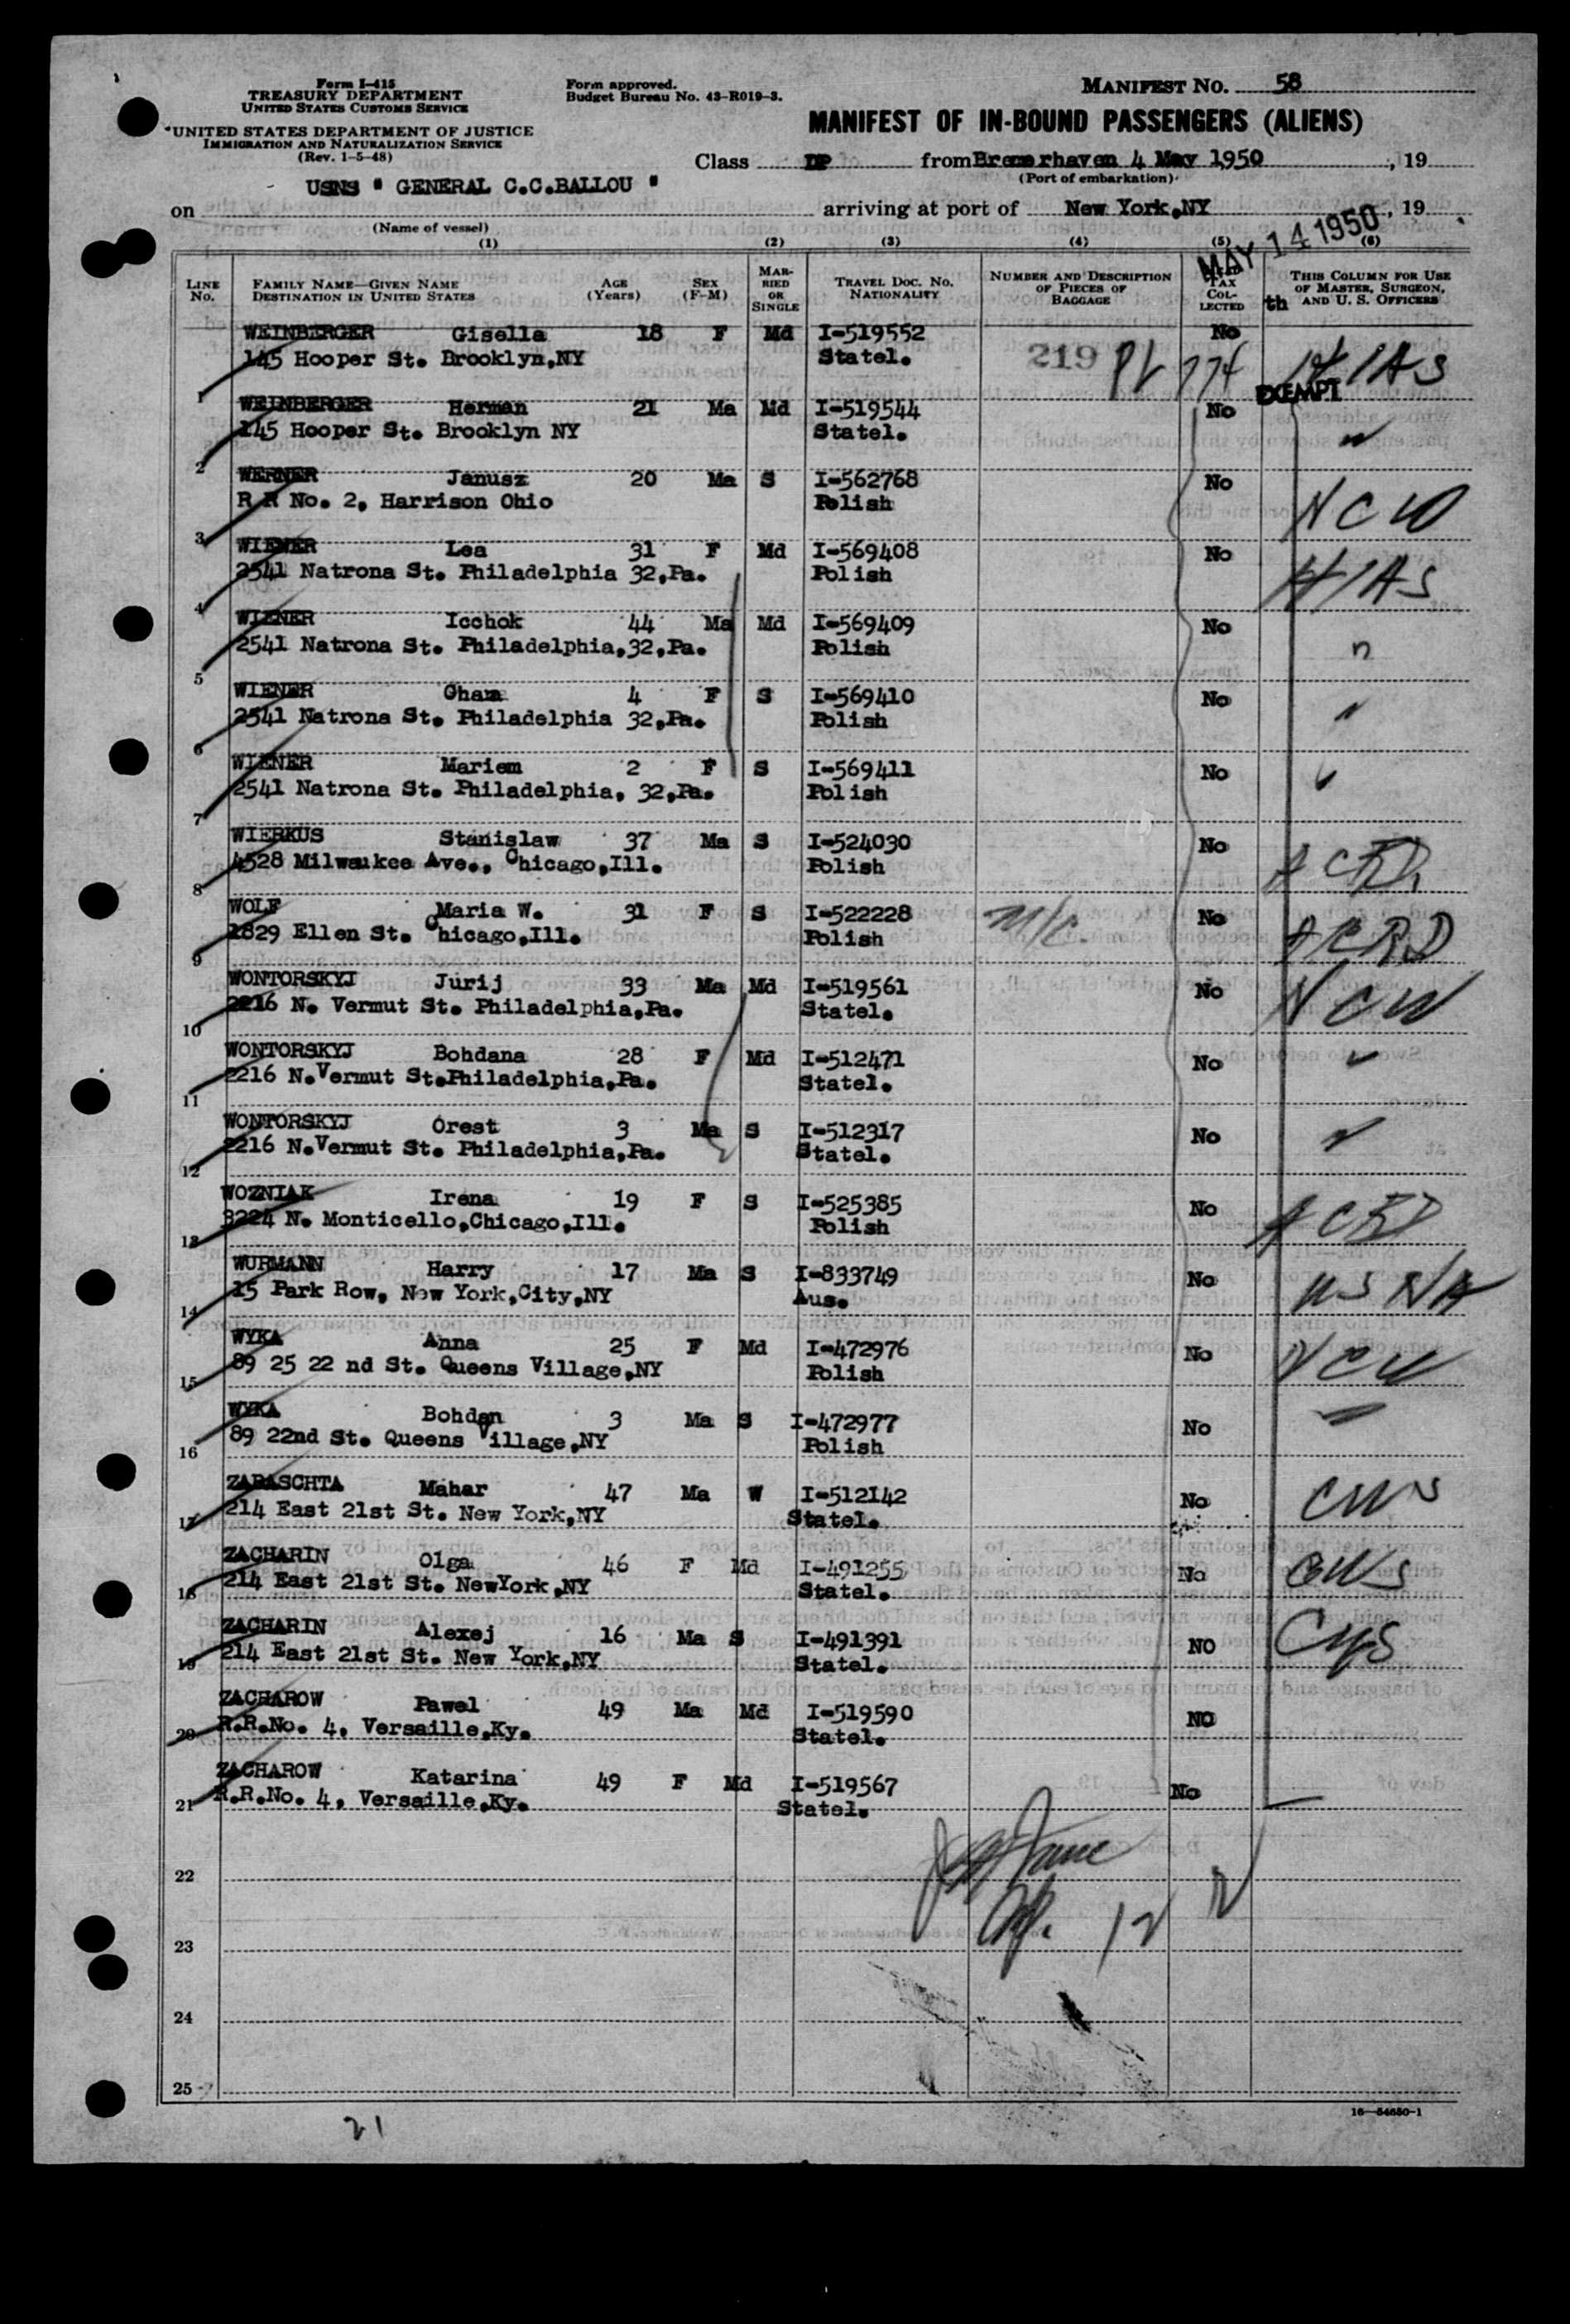 Form I-415
TREASURY DEPARTMENT
UNITED STATES CUSTOMS SERVICE
UNITED STATES DEPARTMENT OF JUSTICE
IMMIGRATION AND NATURALIZATION SERVICE
(Rev. 1-5-48)
Form approved.
Budget Bureau No. 43-R019-3.
MANIFEST NO. 58
MANIFEST OF IN-BOUND PASSENGERS (ALIENS)
Class DP from Bremerhaven 4 May 1950, 19
(Port of embarkation)
USNS " GENERAL C.C.BALLOU "
on arriving at port of New York,NY, 19
(Name of vessel)
MAY 14 1950
(1) (2) (3) (4) (5) (6)
LINE No. FAMILY NAME—GIVEN NAME DESTINATION IN UNITED STATES AGE (Years) SEX (F-M) MARRIED OR SINGLE TRAVEL DOC. NO. NATIONALITY NUMBER AND DESCRIPTION OF PIECES OF BAGGAGE TAX COLLECTED THIS COLUMN FOR USE OF MASTER, SURGEON, AND U. S. OFFICERS
th
WEINBERGER Gisella 18 F Md I-519552 No
1 145 Hooper St. Brooklyn,NY Statel. 219 HIAS
EXEMPT
WEINBERGER Herman 21 Ma Md I-519544 No
2 145 Hooper St. Brooklyn NY Statel.
WERNER Janusz 20 Ma S I-562768 No
3 R R No. 2, Harrison Ohio Polish NCW
WIENER Lea 31 F Md I-569408 No
4 2541 Natrona St. Philadelphia 32,Pa. Polish HIAS
WIENER Icchok 44 Ma Md I-569409 No
5 2541 Natrona St. Philadelphia,32,Pa. Polish "
WIENER Chana 4 F S I-569410 No
6 2541 Natrona St. Philadelphia 32,Pa. Polish "
WIENER Mariem 2 F S I-569411 No
7 2541 Natrona St. Philadelphia, 32,Pa. Polish
WIERKUS Stanislaw 37 Ma S I-524030 No
8 4528 Milwaukee Ave., Chicago,Ill. Polish ACRD
WOLF Maria W. 31 F S I-522228 M/C. No
9 1829 Ellen St. Chicago,Ill. Polish ACRD
WONTORSKYJ Jurij 33 Ma Md I-519561 No
10 2216 N. Vermut St. Philadelphia,Pa. Statel. NCW
WONTORSKYJ Bohdana 28 F Md I-512471 No
11 2216 N.Vermut St.Philadelphia,Pa. Statel.
WONTORSKYJ Orest 3 Ma S I-512317 No
12 2216 N.Vermut St. Philadelphia,Pa. Statel.
WOZNIAK Irena 19 F S I-525385 No
13 3224 N. Monticello,Chicago,Ill. Polish ACRD
WURMANN Harry 17 Ma S I-833749 No
14 15 Park Row, New York,City,NY Aus. USNA
WYKA Anna 25 F Md I-472976 No
15 89 25 22 nd St. Queens Village,NY Polish NCW
WYKA Bohdan 3 Ma S I-472977 No
16 89 22nd St. Queens Village,NY Polish
ZABASCHTA Mahar 47 Ma W I-512142 No
17 214 East 21st St. New York,NY Statel. CWS
ZACHARIN Olga 46 F Md I-491255 No
18 214 East 21st St. NewYork,NY Statel. CWS
ZACHARIN Alexej 16 Ma S I-491391 NO
19 214 East 21st St. New York,NY Statel. CWS
ZACHAROW Pawel 49 Ma Md I-519590 NO
20 R.R.No. 4, Versaille,Ky. Statel.
ZACHAROW Katarina 49 F Md I-519567 No
21 R.R.No. 4, Versaille,Ky. Statel.
22
23
24
25
16—54650-1
21